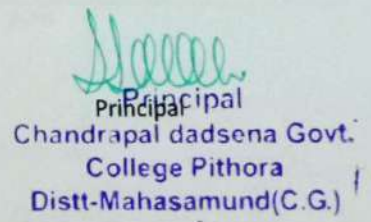 Principal
Principal
Chandrapal dadsena Govt.
College Pithora
Distt-Mahasamund(C.G.)